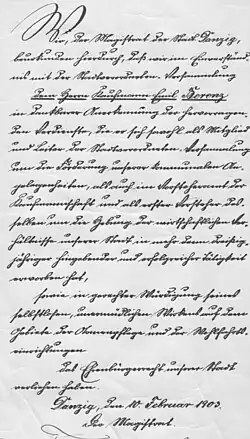 Wir, der Magistrat der Stadt Danzig,
beurkunden hierdurch, daß wir im Einverständ-
niß mit der Stadtverordneten-Versammlung
dem Herrn Kaufmann Emil Berenz
in dankbarer Anerkennung der hervorragen-
den Verdienste, die er sich sowohl als Mitglied
und Leiter der Stadtverordneten-Versammlung
um die Förderung unserer kommunalen An-
gelegenheiten, als auch im Vorsteheramt der
Kaufmannschaft und als erster Vorsteher des-
selben um die Hebung der wirthschaftlichen Ver-
hältnisse unserer Stadt, in mehr denn dreißig-
jähriger hingebender und erfolgreicher Tätigkeit
erworben hat,
sowie in gerechter Würdigung seines
selbstlosen, unermüdlichen Wirkens auf dem
Gebiete der Armenpflege und der Wohlfahrts-
einrichtungen
das Ehrenbürgerrecht unserer Stadt
verliehen haben.
Danzig, den 10. Februar 1903.
Der Magistrat.